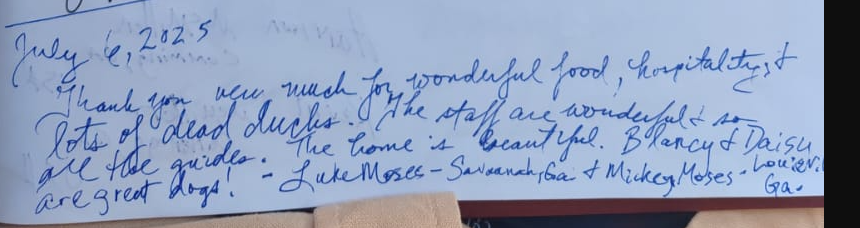 July 6, 2025
Thank you very much for wonderful food, hospitality, &
lots of dead ducks. The staff are wonderful & so
are the guides. The home is beautiful. Blancy & Daisy
are great dogs! - Luke Moses - Savannah, Ga. & Mickey Moses - Louisvi
Ga.